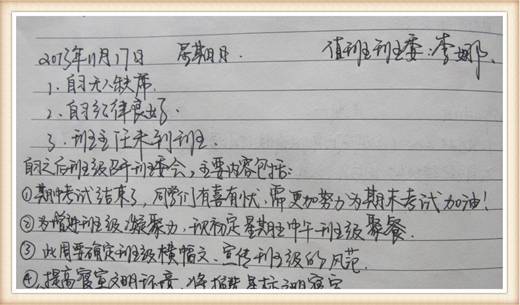 2013年11月17日 星期日. 值班班委:李娜.
1、自习无人缺席.
2、自习纪律良好.
3、班主任未到班.
自习之后班级召开班委会,主要内容包括:
①期中考试结束了,同学们有喜有忧,需更加努力为期末考试加油!
②为增进班级凝聚力,现初定星期三中午班级聚餐.
③此周要确定班级横幅文、宣传班级的风范.
④提高寝室文明环境,将 文明寝室